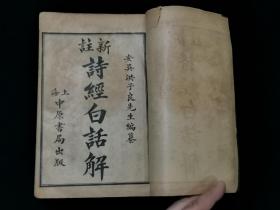 安吳洪子良先生編纂
新註
詩經白話解
上海
中原書局出版